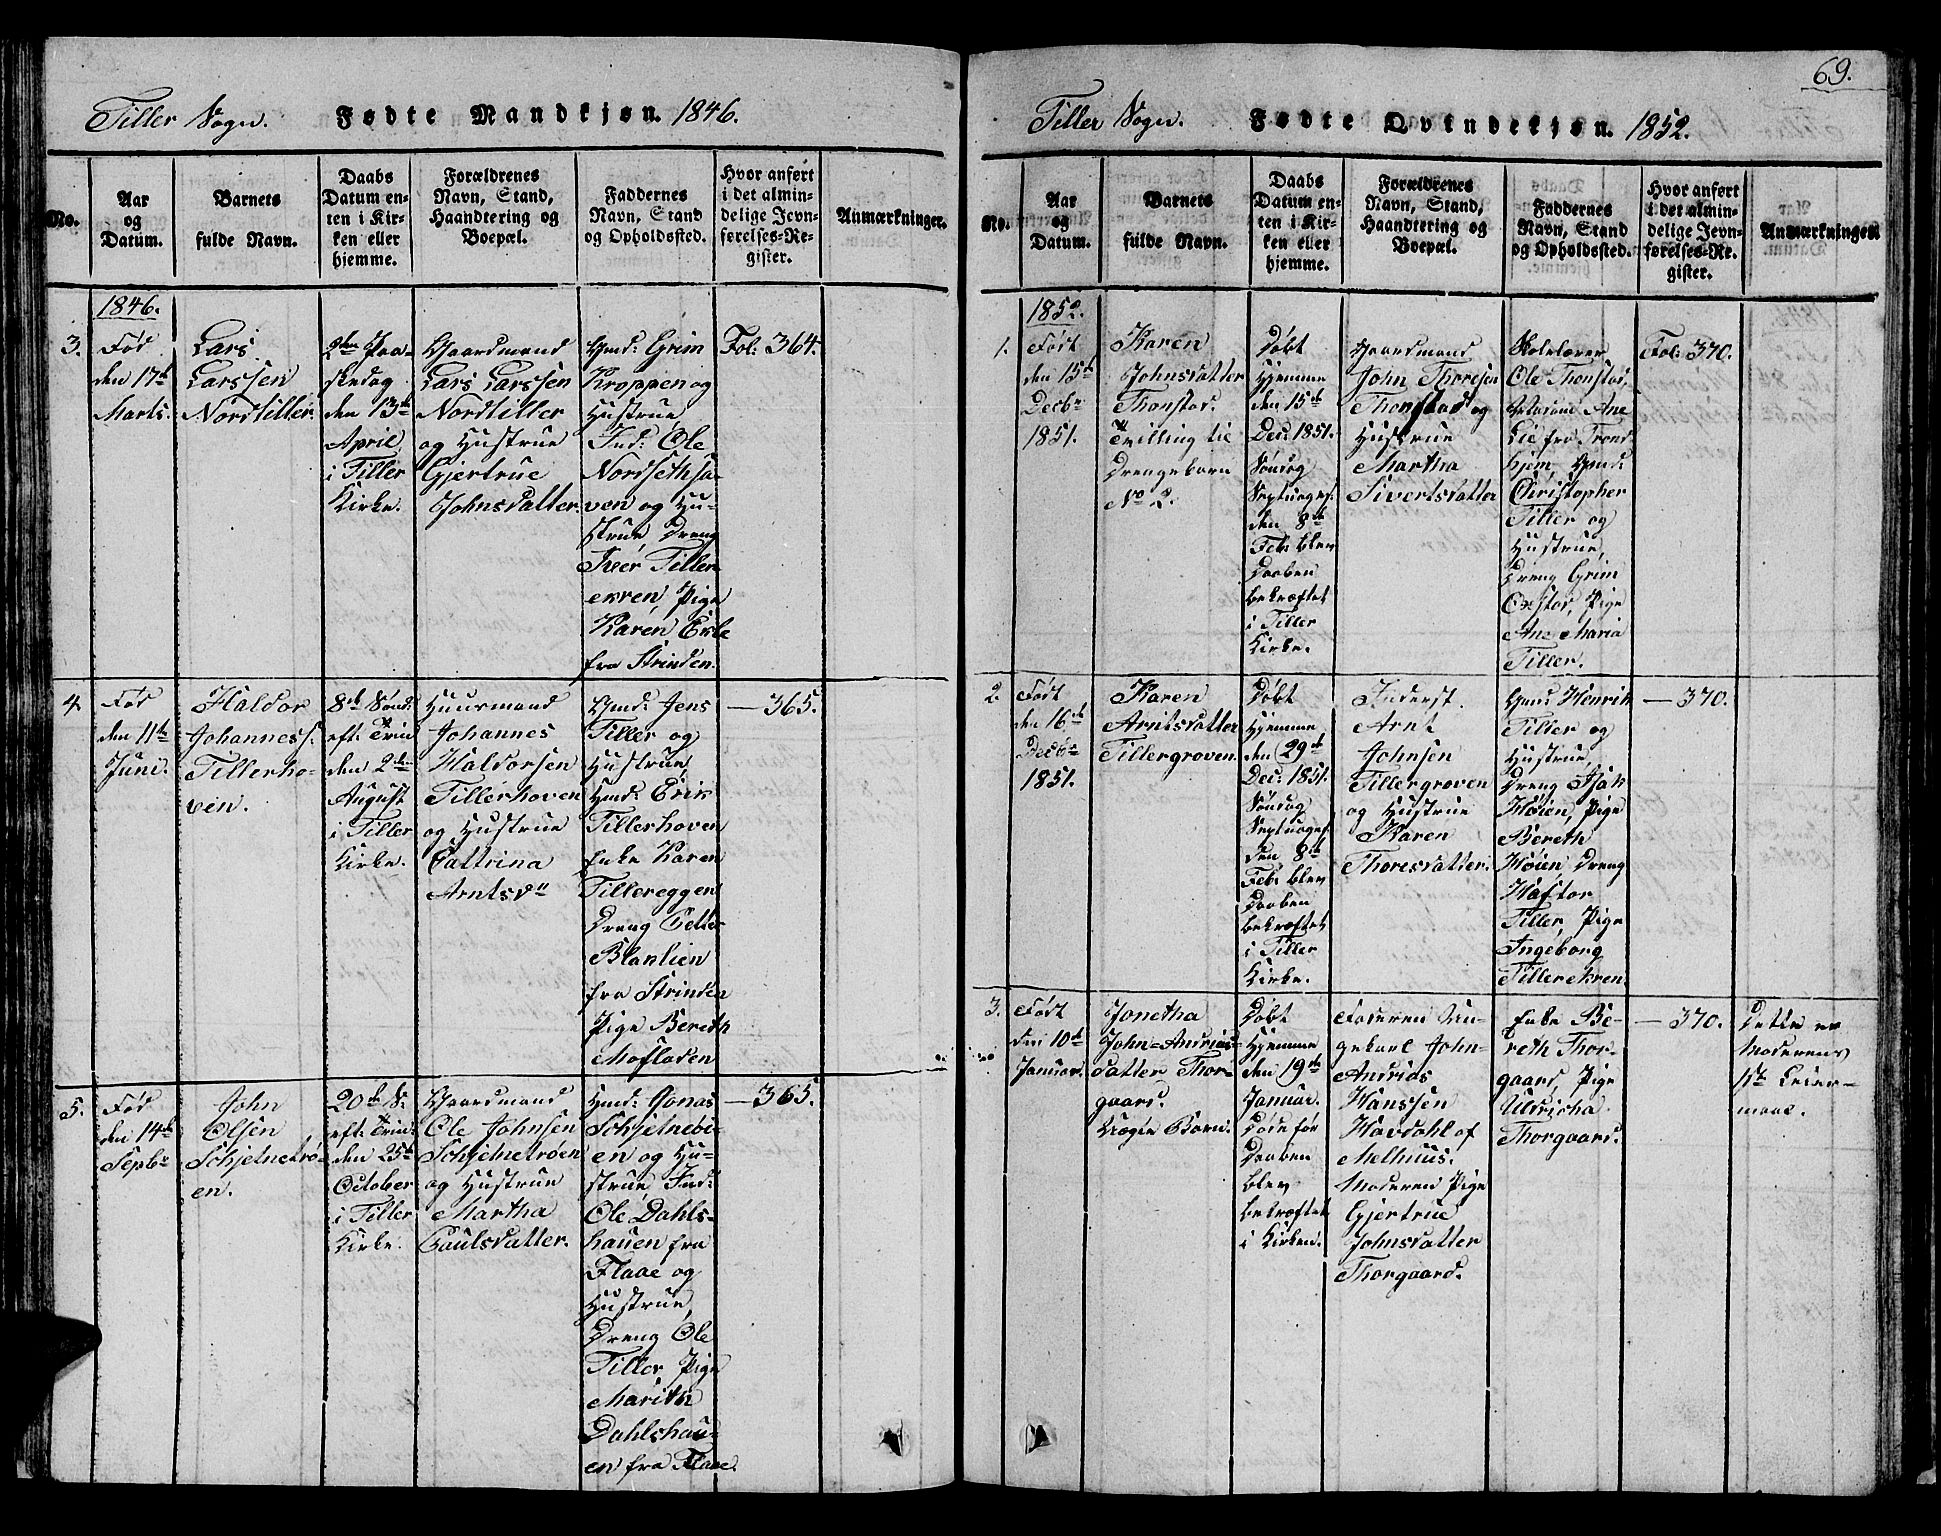 Tiller Sogn. Fødte Mandkjøn. 1846.
No.
Aar
og
Datum.
Barnets
fulde Navn.
Daabs
Datum en-
ten i Kir-
ken eller
hjemme.
Forældrenes
Navn, Stand,
Haandtering og
Boepæl.
Faddernes
Navn, Stand
og Opholdssted.
Hvor anført
i det almin-
delige Jevn-
førelses-Re-
gister.
Anmærkninger.
1846.
3.
Fød
den 17de
Marts.
Lars
Larssen
Nordtiller
2den Paa-
skedag
den 13de
April
i Tiller
Kirke.
Gaardmand
Lars Larssen
Nordtiller
og Hustrue
Gjertrue
Johnsdatter.
Gmd: Grim
Kroppen og
Hustrue
Ind: Ole
Nordsethsa-
ven og Hu-
strue, Dreng
Iver Tiller-
ekren, Pige
Karen
fra Strinden.
Fol: 364.
4.
Fød
den 11te
Juni.
Haldor
Johanness.
Tillerho-
ven.
8de Sønd:
eft. Trin
den 2den
August
i Tiller
Kirke.
Huusmand
Johannes
Haldorsen
Tillerhoven
og Hustrue
Cattrina
Arntsdtr
Gmd: Jens
Tiller og
Hustrue
Hmd: Erik
Tillerhoven
Enke Karen
Tillereggen
Dreng Peder
Blaklien
fra Strinden
Pige Bereth
Mosloden
— 365.
5.
Fød
den 14de
Sepbr
John
Olsen
Schjetnetrø-
en.
20de S.
eft. Trin:
den 25de
October
i Tiller
Kirke.
Gaardmand
Ole Johnsen
Schjetnetrøen
og Hustrue
Martha
Paulsdatter.
Hmd: Jonas
Schjetnebi-
en og Hu-
strue Ind:
Ole Dahls-
hauen fra
Flaae og
Hustrue,
Dreng Ole
Tiller, Pige
Marith
Dahlshau-
en fra Flaae.
— 365.
69.
Tiller Sogn. Fødte Qvindekjøn. 1852.
No.
Aar
og
Datum.
Barnets
fulde Navn.
Daabs
Datum en-
ten i Kir-
ken eller
hjemme.
Forældrenes
Navn, Stand,
Haandtering og
Boepæl.
Faddernes
Navn, Stand
og Opholdssted.
Hvor anført
i det almin-
delige Jevn-
førelses-Re-
gister.
Anmærkninger.
1852.
1.
Født
den 15de
Decbr
1851.
Karen
Johnsdatter
Thonstad.
Tvilling til
Drengebarn
No 2.
Døbt
hjemme
den 15de
Dec: 1851.
Søndag
Septuages.
den 8de
Feb: blev
Daaben
bekræftet
i Tiller
Kirke.
Gaardmand
John Thoresen
Thonstad og
Hustrue
Martha
Sivertsdatter
Skolelærer
Ole Thonstad,
Ane
Lie fra Trond-
hjem, Gmd:
Christopher
Tiller og
Hustrue,
Dreng Grim
Oxstad, Pige
Ane Maria
Tiller.
Fol: 370.
2.
Født
den 16de
Decbr
1851.
Karen
Arntsdatter
Tillergroven.
Døbt
hjemme
den 29de
Dec: 1851.
Søndag
Septuages.
den 8de
Feb: blev
Daaben
bekræftet
i Tiller
Kirke.
Inderst.
Arnt
Johnsen
Tillergroven
og Hustrue
Karen
Thoresdatter.
Gmd: Henrik
Tiller og
Hustrue,
Dreng Isak
Høien, Pige
Bereth
Høien, Dreng
Haftor
Tiller, Pige
Ingeborg
Tillerekren.
— 370.
3.
Født
den 10de
Januar.
Jonetha
John-Andrias-
datter Thor-
gaard.
Uægte Barn.
Døbt
hjemme
den 19de
Januar.
Døde før
Daaben
blev
bekræftet
i Kirken.
Faderen Un-
gekarl John-
Andrias
Hanssen
Havdahl af
Melhuus.
Moderen Pige
Gjertrue
Johnsdatter
Thorgaard.
Enke Be-
reth Thor-
gaard, Pige
Uldricha
Thorgaard.
— 370.
Dette er
Moderens
1ste Leier-
maal.